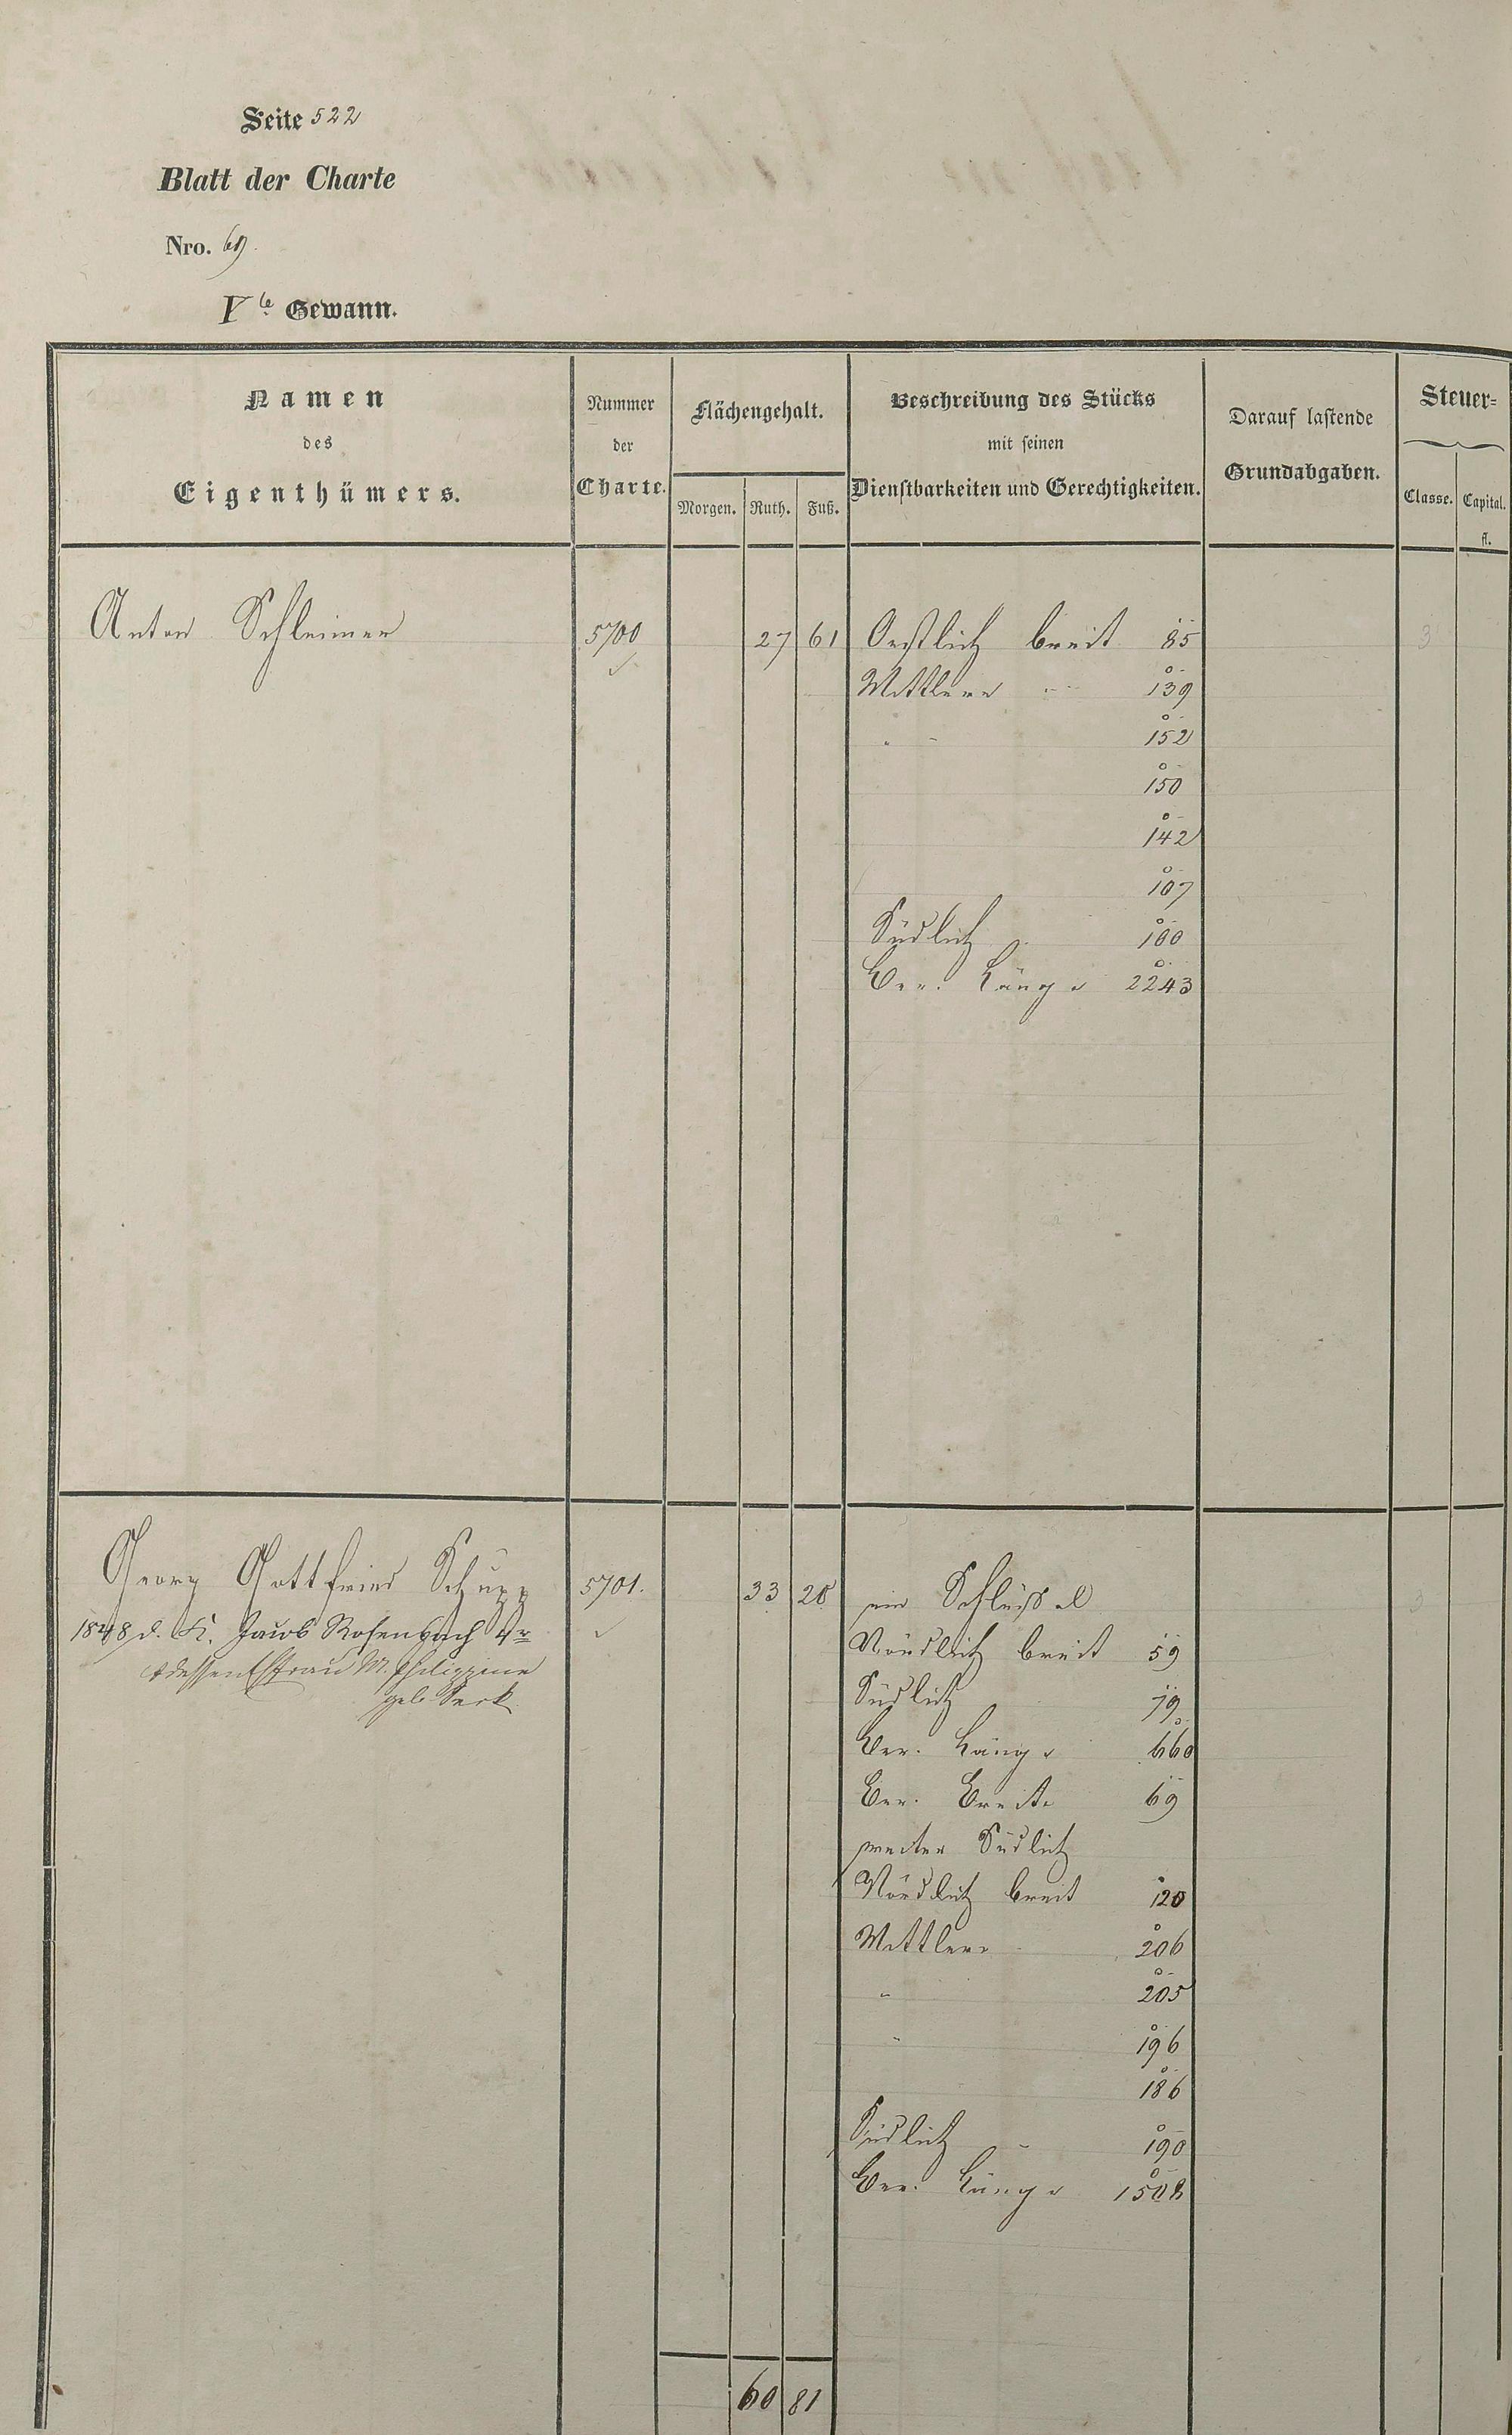 Seite 522
Blatt der Charte
Nro. 69.
Vte Gewann.
Namen
des
Eigenthümers.
Nummer
der
Charte.
Flächengehalt.
Morgen. Ruth. Fuß.
Beschreibung des Stücks
mit seinen
Dienstbarkeiten und Gerechtigkeiten.
Darauf lastende
Grundabgaben.
Steuer=
Classe. Capital.
fl.
Anton Schleimer 5700 27 61 Oestlich breit 85 3
Mittlere " 139
" - 152
150
142
107
Südlich 100
Ber. Länge 2243
Georg Gottfried Schupp 5701. 33 20 ein Schlüssel 3
1848 d. K. Jacob Rosenbach 4r
Nördlich breit 59
& dessen Ehfrau M. Philippine
geb.
Südlich 79
Ber. Länge 660
Ber. Breite 69
weiter Südlich
Nördlich breit 120
Mittlere 206
" 205
" 196
186
Südlich - 190
Ber. Länge 1508
60 81